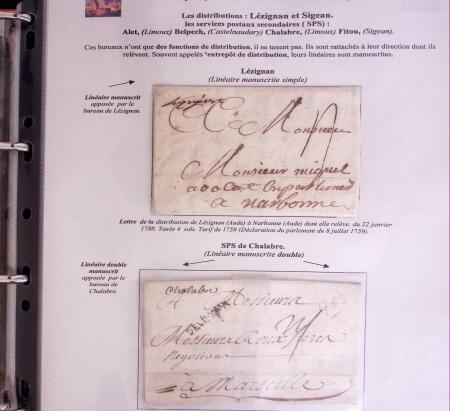 Les distributions : Lézignan et Sigean.
les services postaux secondaires (SPS) :
Alet, (Limoux) Belpech, (Castelnaudary) Chalabre, (Limoux) Fitou, (Sigean).
Ces bureaux n'ont que des fonctions de distribution, il ne taxent pas. Ils sont rattachés à leur direction dont ils
relèvent. Souvent appelés *entrepôt de distribution, leurs linéaires sont manuscrites.
Lézignan
(Linéaire manuscrite simple)
Linéaire manuscrit
apposée par le
bureau de Lézignan.
A Monsieur
Monsieur miquel
avocat
a narbonne
Lettre de la distribution de Lézignan (Aude) à Narbonne (Aude) dont elle relève. du 22 janvier
1788. Taxée 4 sols. Tarif de 1759 (Déclaration du parlement du 8 juillet 1759).
SPS de Chalabre.
(Linéaire manuscrite double)
Linéaire double
manuscrit
apposée par le
bureau de
Chalabre.
Chalabre
A Messieurs
DELIMOUX
Messieurs Roux freres
Negotians
à Marseille